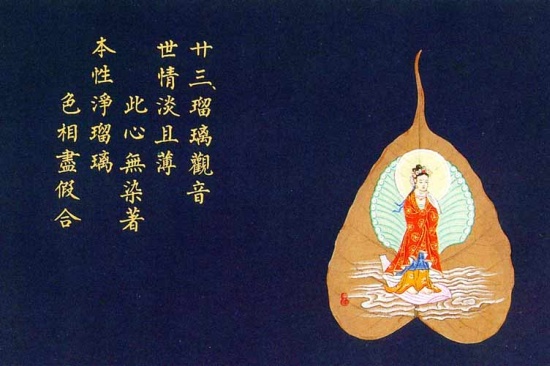 廿三、瑠璃觀音
世情淡且薄
此心無染著
本性淨瑠璃
色相盡假合